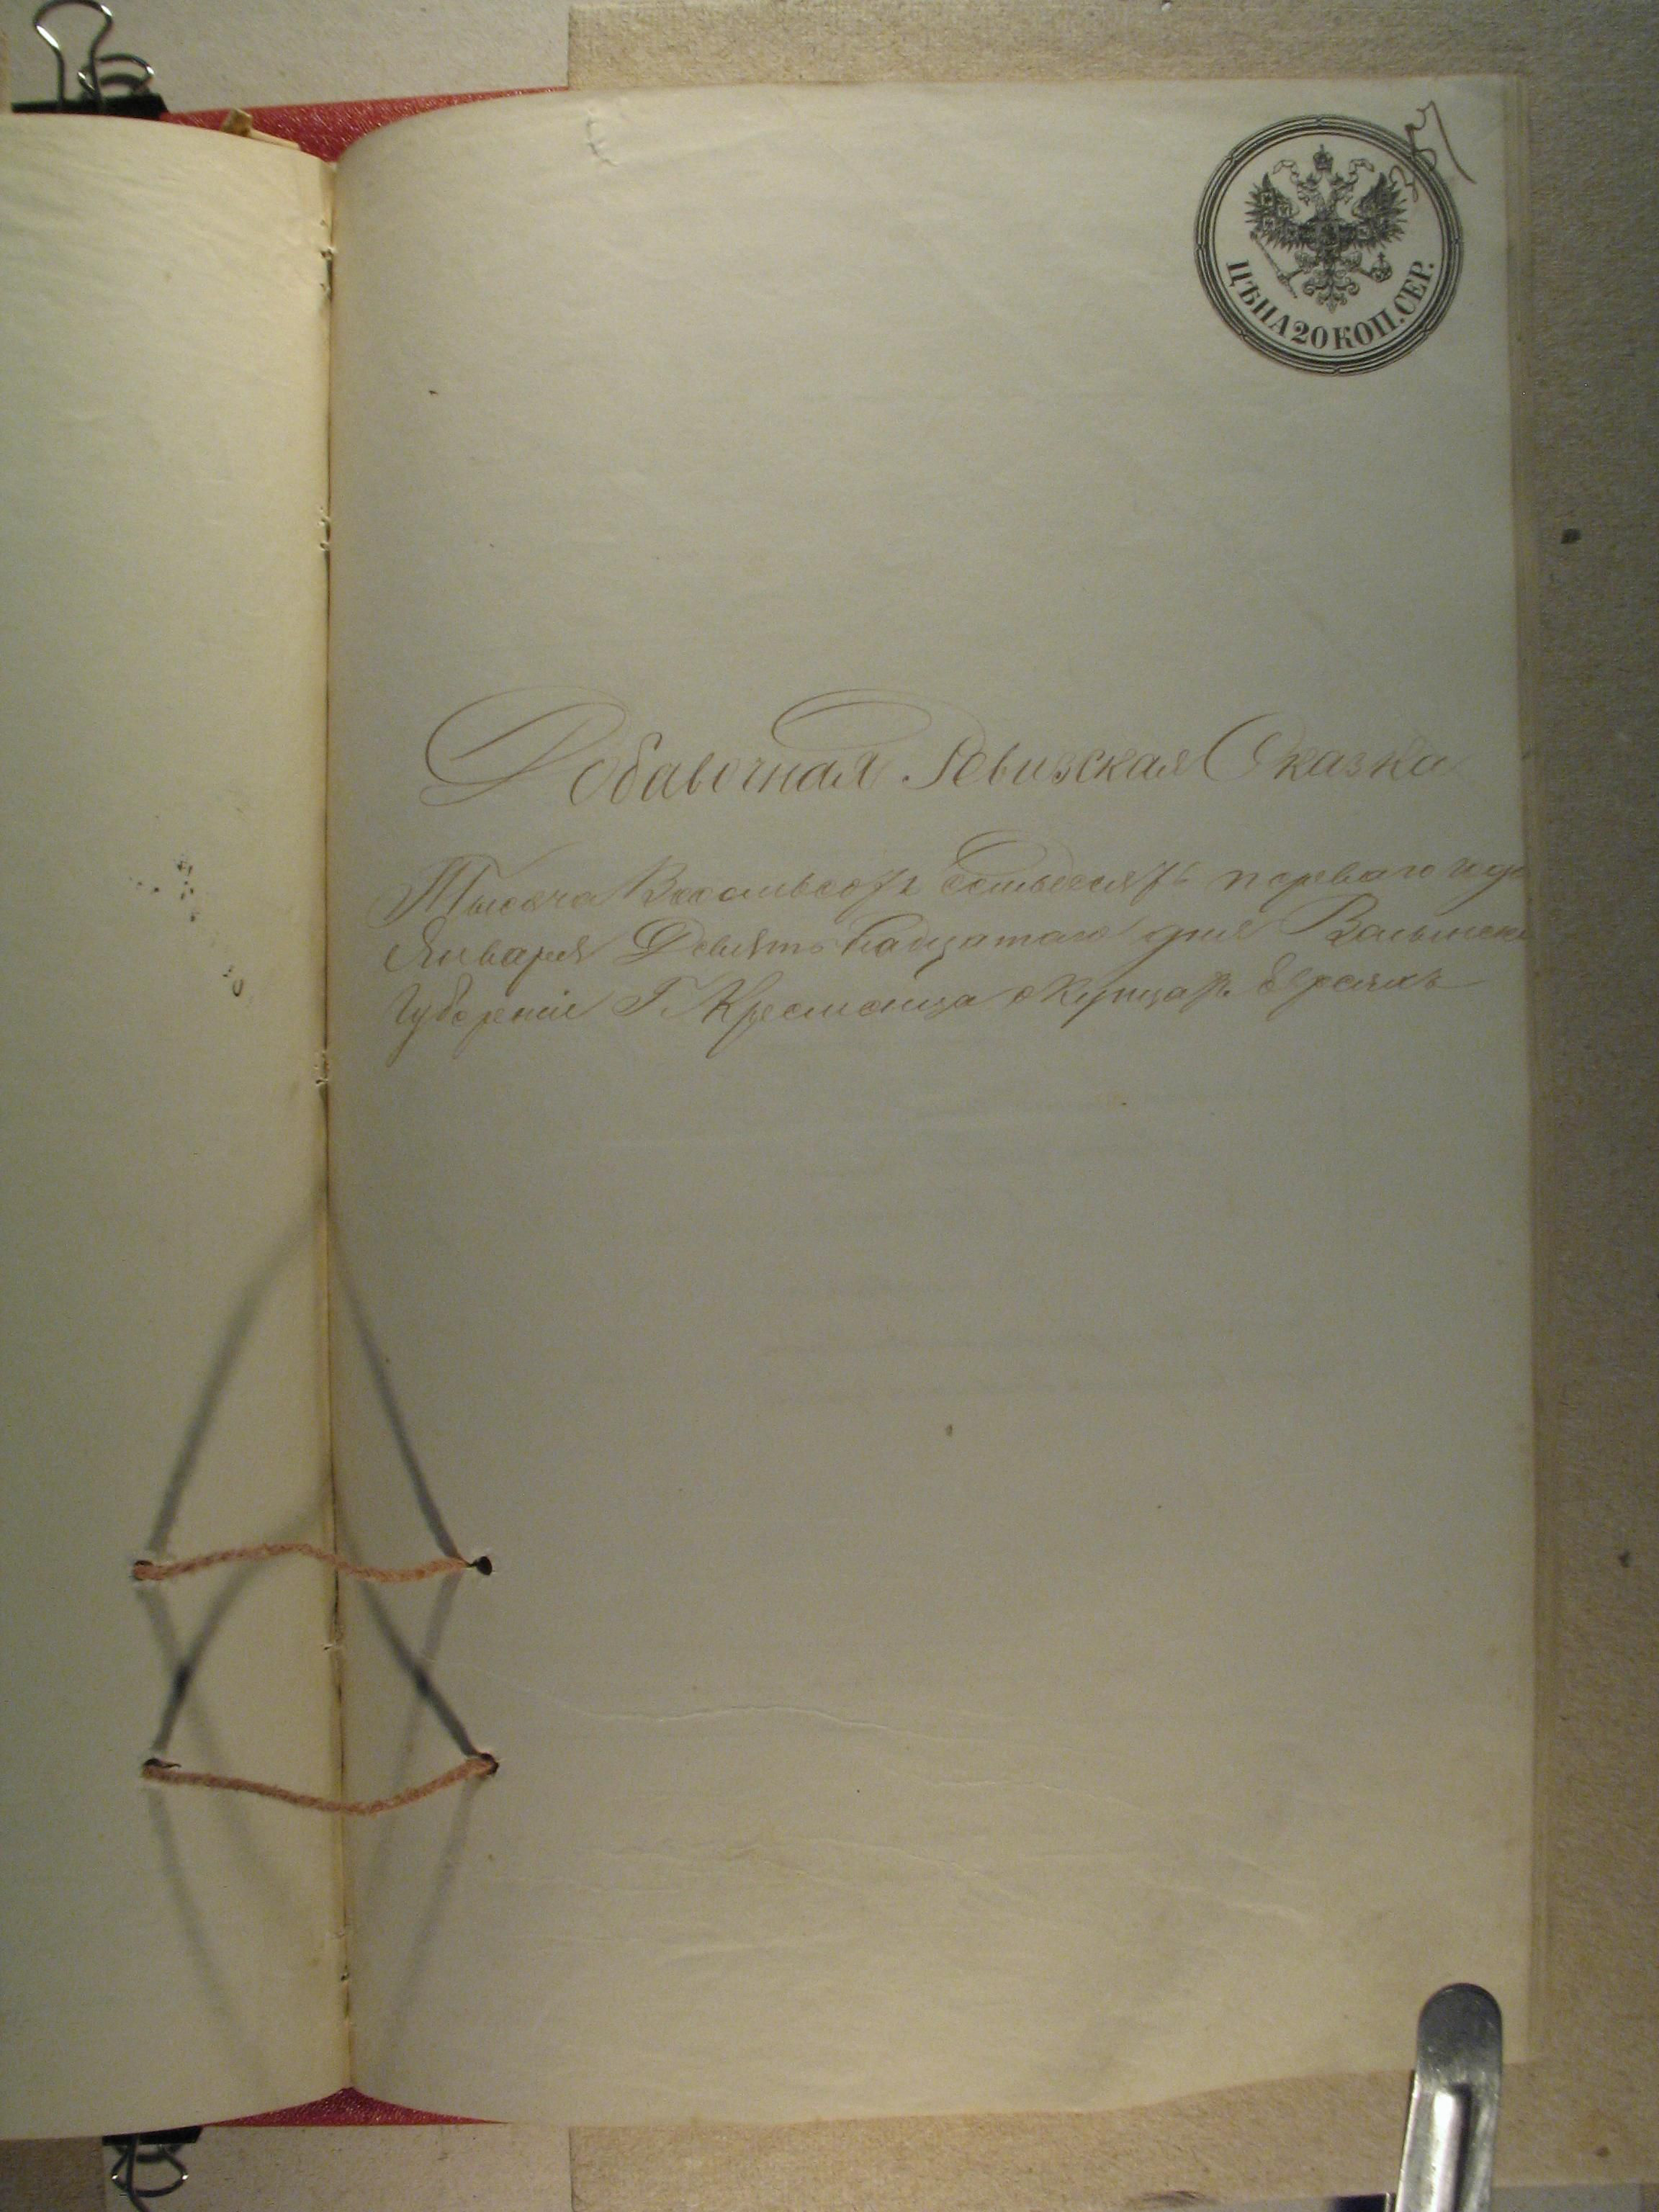 ЦѢНА 20 КОП. СЕР.
Добавочная Ревизская Сказка
Тысяча Восемьсотъ семьдесятъ перваго года
Января Девятьнадцатаго дня Волынской
Губерніи Г. Кременца о Купцахъ Евреяхъ